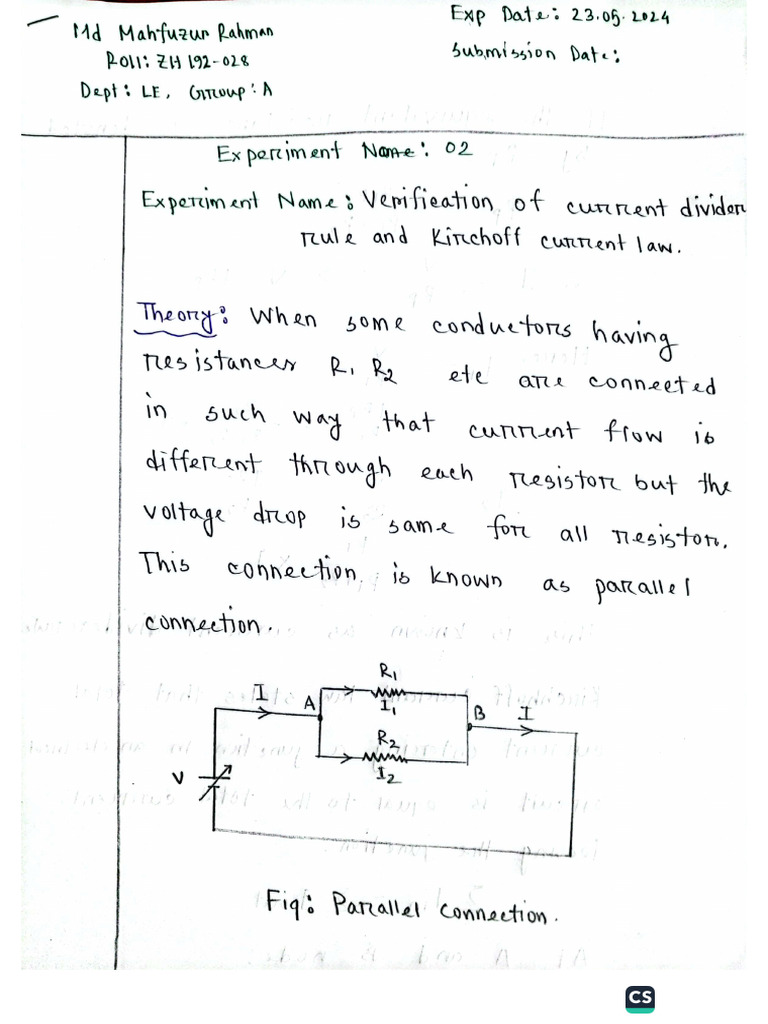 Md Mahfuzur Rahman
Roll: ZH192-028
Dept: LE, Group: A
Exp Date: 23.05.2024
Submission Date:
Experiment Name: 02
Experiment Name: Verification of current divider
rule and Kirchoff current law.
Theory: When some conductors having
resistances R1 R2 etc are connected
in such way that current flow is
different through each resistor but the
voltage drop is same for all resistor.
This connection is known as parallel
connection.
R1
I
A
I1
B
I
R2
V
I2
Fig: Parallel connection.
CS